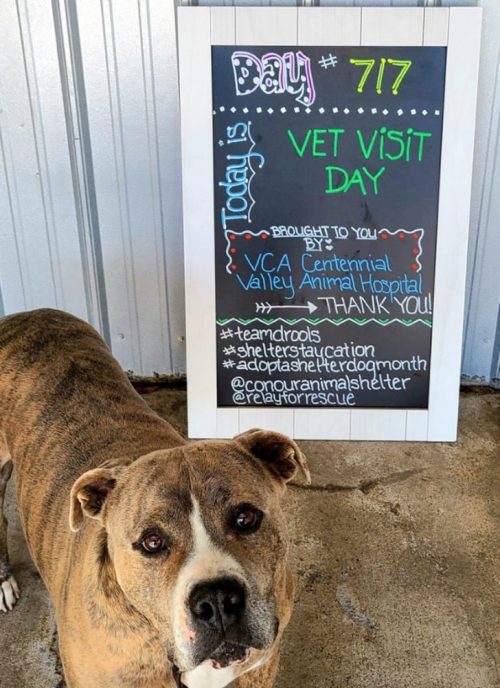 Day # 717
Today is
VET VISIT
DAY
BROUGHT TO YOU
BY:
VCA Centennial
Valley Animal Hospital
THANK YOU!
#teamdrools
#shelterstaycation
#adoptashelterdogmonth
@conouranimalshelter
@relayforrescue